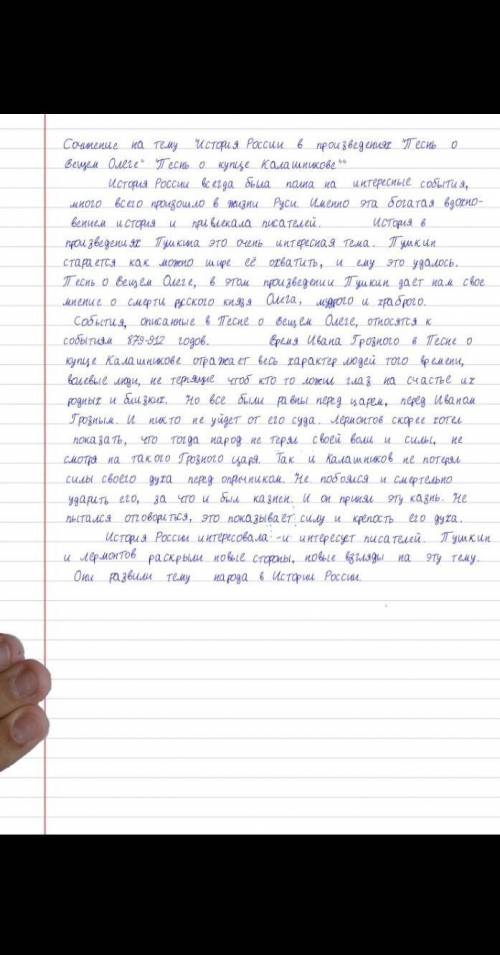 Сочинение на тему "История России в произведениях "Песнь о
Вещем Олеге" "Песнь о купце Калашникове""
История России всегда была полна на интересные события,
много всего произошло в жизни Руси. Именно эта богатая вдохно-
вением история и привлекала писателей. История в
произведениях Пушкина это очень интересная тема. Пушкин
старается как можно шире её охватить, и ему это удалось.
Песнь о Вещем Олеге, в этом произведении Пушкин даёт нам свое
мнение о смерти русского князя Олега, мудрого и храброго.
События, описанные в Песне о Вещем Олеге, относятся к
событиям 879-912 годов. Время Ивана Грозного в Песне о
купце Калашникове отражает весь характер людей того времени,
волевые люди, не терпящие чтоб кто то ложил глаз на счастье их
родных и близких. Но все были равны перед царем, перед Иваном
Грозным. И никто не уйдет от его суда. Лермонтов скорее хотел
показать, что тогда народ не терял своей воли и силы, не
смотря на такого Грозного царя. Так и Калашников не потерял
силы своего духа перед опричником. Не побоялся и смертельно
ударить его, за что и был казнен. И он принял эту казнь. Не
пытался отговориться, это показывает силу и крепость его духа.
История России интересовала и интересует писателей. Пушкин
и Лермонтов раскрыли новые стороны, новые взгляды на эту тему.
Они развили тему народа в Истории России.